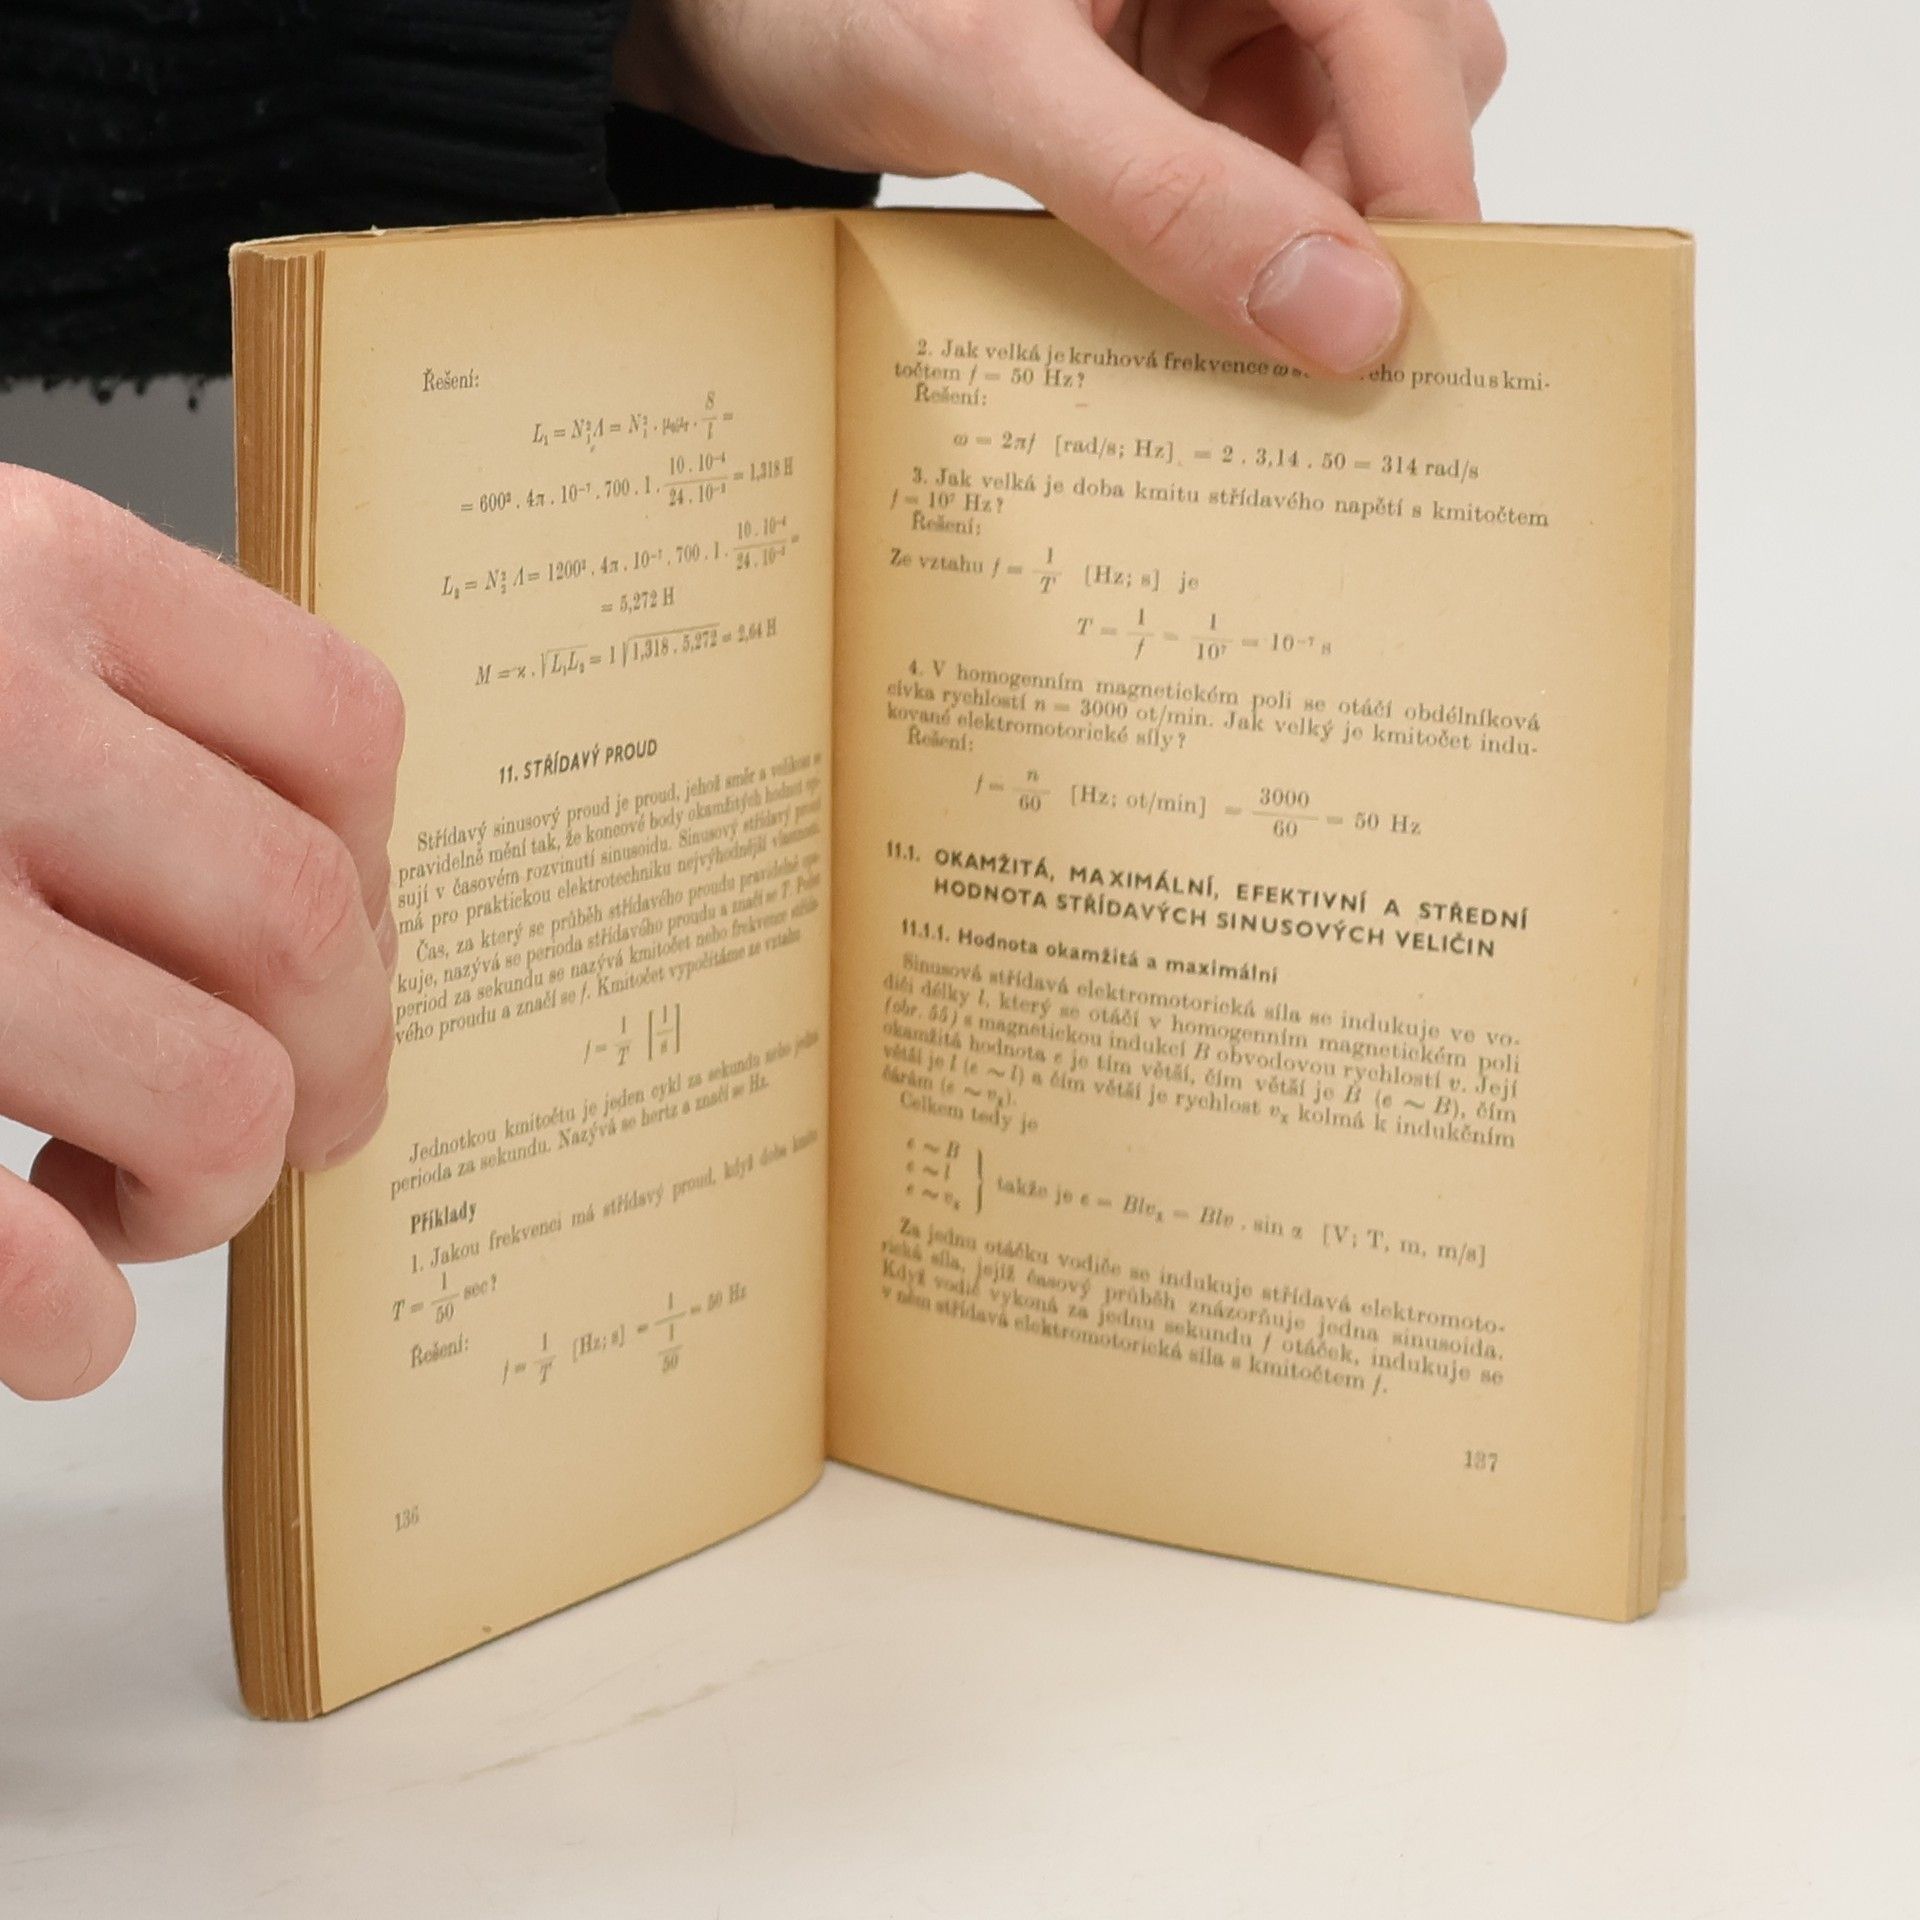 Řešení:
L₁ = N₁²Λ = N₁² . μ₀μᵣ . S/l =
= 600² . 4π . 10⁻⁷ . 700 . 1 . 10 . 10⁻⁴/24 . 10⁻² = 1,318 H
L₂ = N₂² Λ = 1200² . 4π . 10⁻⁷ . 700 . 1 . 10 . 10⁻⁴/24 . 10⁻² =
= 5,272 H
M = ϰ . √L₁L₂ = 1 √1,318 . 5,272 = 2,64 H
11. STŘÍDAVÝ PROUD
Střídavý sinusový proud je proud, jehož směr a velikost se
pravidelně mění tak, že koncové body okamžitých hodnot opi-
sují v časovém rozvinutí sinusoidu. Sinusový střídavý proud
má pro praktickou elektrotechniku nejvýhodnější vlastnosti.
Čas, za který se průběh střídavého proudu pravidelně opa-
kuje, nazývá se perioda střídavého proudu a značí se T. Počet
period za sekundu se nazývá kmitočet nebo frekvence střída-
vého proudu a značí se f. Kmitočet vypočítáme ze vztahu
f = 1/T [1/s]
Jednotkou kmitočtu je jeden cykl za sekundu nebo jedna
perioda za sekundu. Nazývá se hertz a značí se Hz.
Příklady
1. Jakou frekvenci má střídavý proud, když doba kmitu
T = 1/50 sec?
Řešení:
f = 1/T [Hz; s] = 1/(1/50) = 50 Hz
136
2. Jak velká je kruhová frekvence ω proudu s kmi-
točtem f = 50 Hz?
Řešení:
ω = 2πf [rad/s; Hz] = 2 . 3,14 . 50 = 314 rad/s
3. Jak velká je doba kmitu střídavého napětí s kmitočtem
f = 10⁷ Hz?
Řešení:
Ze vztahu f = 1/T [Hz; s] je
T = 1/f = 1/10⁷ = 10⁻⁷ s
4. V homogenním magnetickém poli se otáčí obdélníková
cívka rychlostí n = 3000 ot/min. Jak velký je kmitočet indu-
kované elektromotorické síly?
Řešení:
f = n/60 [Hz; ot/min] = 3000/60 = 50 Hz
11.1. OKAMŽITÁ, MAXIMÁLNÍ, EFEKTIVNÍ A STŘEDNÍ
HODNOTA STŘÍDAVÝCH SINUSOVÝCH VELIČIN
11.1.1. Hodnota okamžitá a maximální
Sinusová střídavá elektromotorická síla se indukuje ve vo-
diči délky l, který se otáčí v homogenním magnetickém poli
(obr. 55) s magnetickou indukcí B obvodovou rychlostí v. Její
okamžitá hodnota e je tím větší, čím větší je B (e ~ B), čím
větší je l (e ~ l) a čím větší je rychlost vₓ kolmá k indukčním
čárám (e ~ vₓ).
Celkem tedy je
e ~ B
e ~ l
e ~ vₓ } takže je e = Blvₓ = Blv . sin α [V; T, m, m/s]
Za jednu otáčku vodiče se indukuje střídavá elektromoto-
rická síla, jejíž časový průběh znázorňuje jedna sinusoida.
Když vodič vykoná za jednu sekundu f otáček, indukuje se
v něm střídavá elektromotorická síla s kmitočtem f.
137